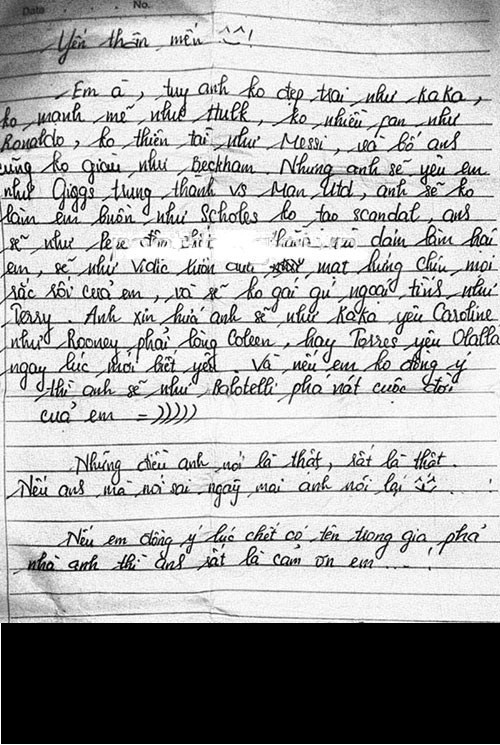 Date No.
Yến thân mến ^^!
Em à, tuy anh ko đẹp trai như KaKa,
ko mạnh mẽ như Hulk, ko nhiều fan như
Ronaldo, ko thiên tài như Messi, và bố ans
cũng ko giàu như Beckham. Nhưng anh sẽ yêu em
như Giggs trung thành vs Man Utd, anh sẽ ko
làm em buồn như Scholes ko tạo scandal, ans
sẽ như dám làm hại
em, sẽ như Vidic luôn mạt hứng chịu mọi
sắc sôi của em, và sẽ ko gái gú ngoài tìns như
Terry. Anh xin hứa anh sẽ như KaKa yêu Caroline
như Rooney phải lòng Coleen, hay Torres yêu Olalla
ngay lúc mới biết yêu. Và nếu em ko đồng ý
thì anh sẽ như Balotelli phá nát cuộc đời
của em =)))))
Những điều anh nói là thật, rất là thật.
Nếu ans mà nói sai ngày mai anh nói lại ^^
Nếu em đồng ý lúc chết có tên trong gia phả
nhà anh thì ans rất là cảm ơn em....!